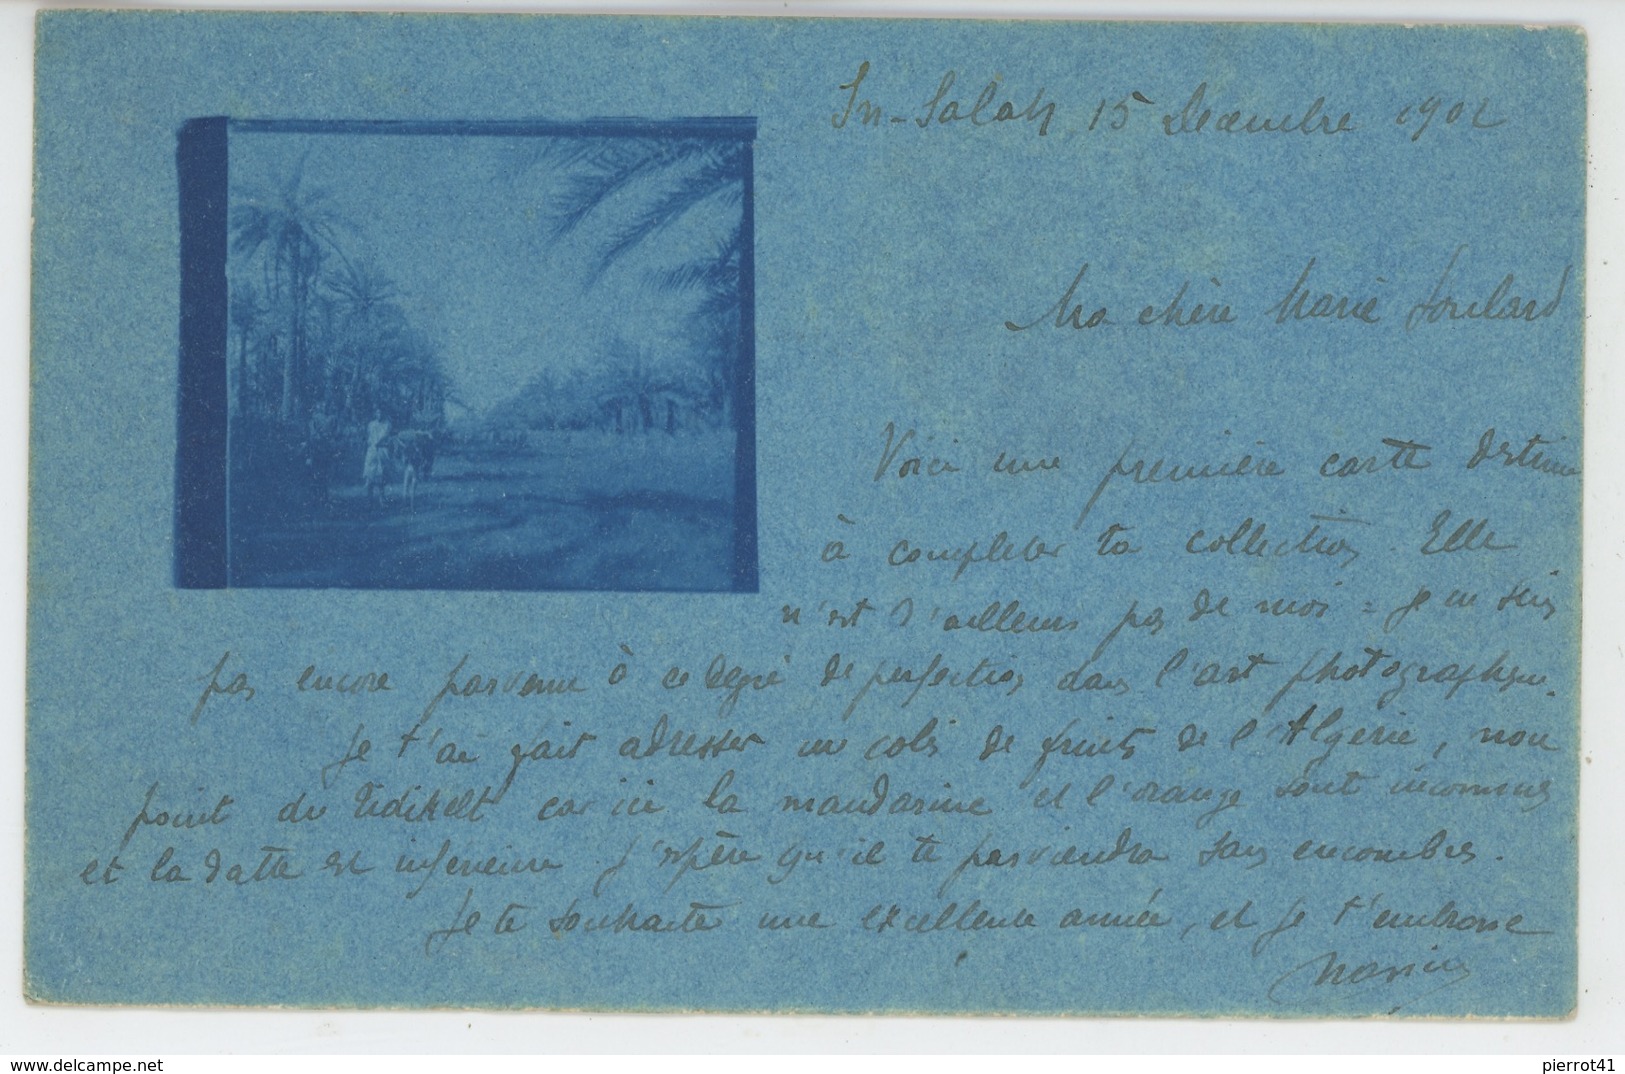 In-Salah 15 Decembre 1902
Ma chère Marie Soulard
Voici une première carte destinée
à completer ta collection. Elle
n'est d'ailleurs pas de moi = je ne suis
pas encore parvenu à ce degré de perfection dans l'art photographique.
Je t'ai fait adresser un colis de fruits de l'Algérie, non
point du Tidikelt car ici la mandarine et l'orange sont inconnues
et la datte est inferieure. J'espère qu'il te parviendra sans encombres.
Je te souhaite une excellente année, et je t'embrasse
www.delcampe.net
pierrot41